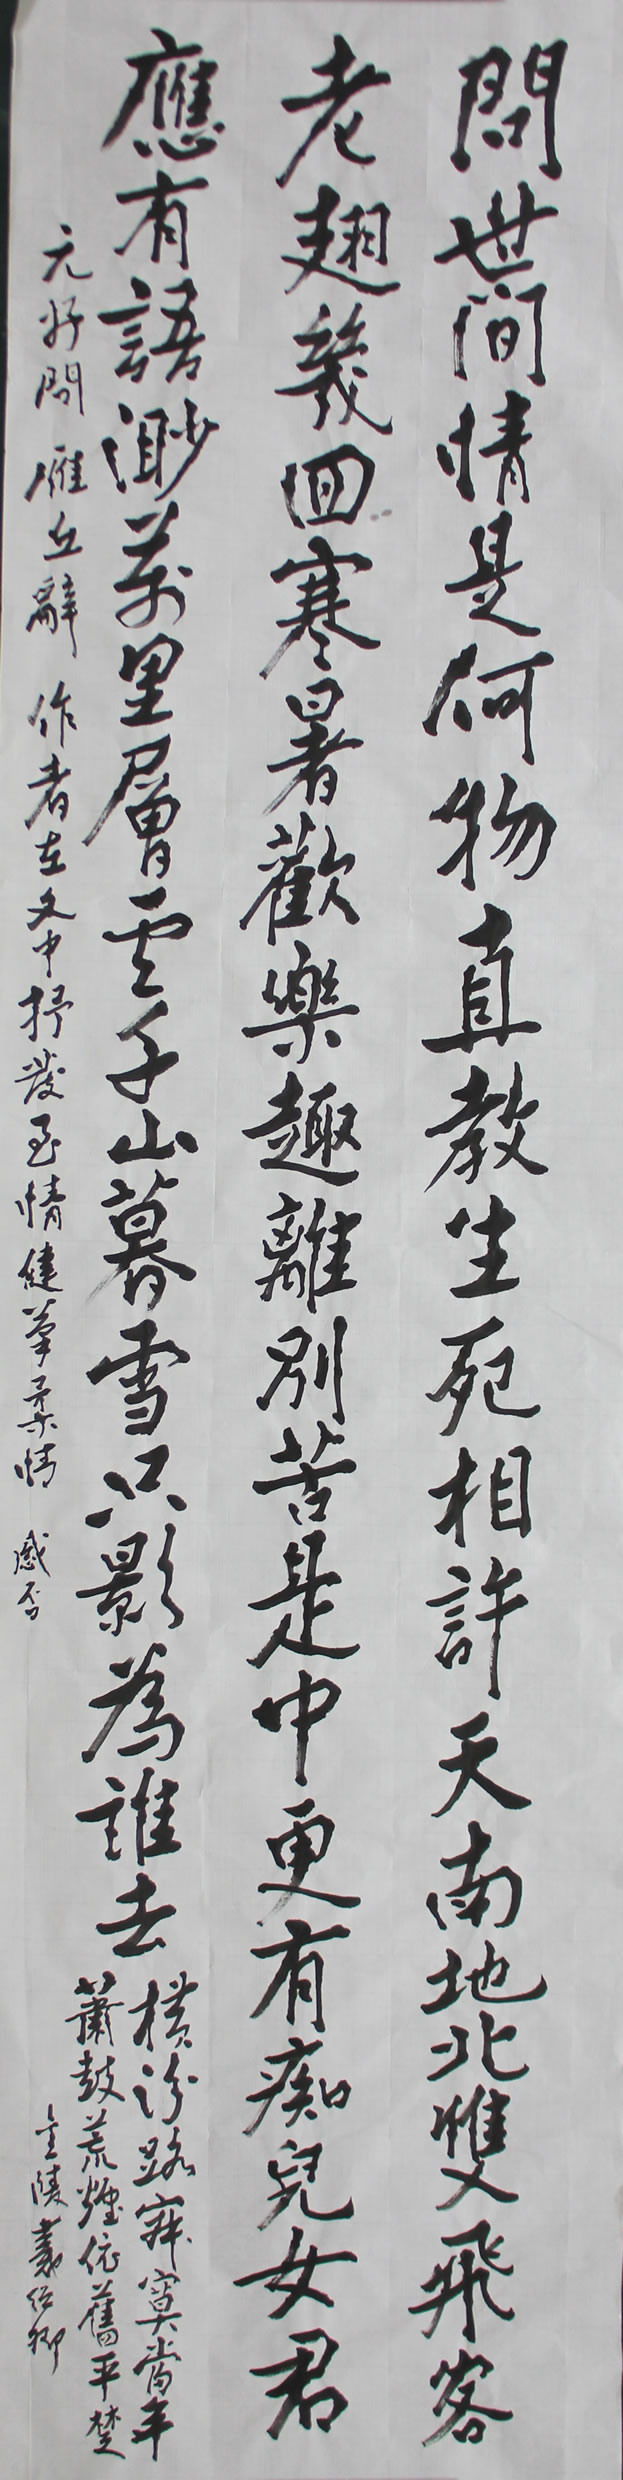 問世間情是何物直教生死相許天南地北雙飛客
老翅幾回寒暑歡樂趣離別苦是中更有痴兒女君
應有語渺萬里層雲千山暮雪只影為誰去
橫汾路寂寞當年
蕭鼓荒煙依舊平楚
元好問 雁丘辭 作者在文中抒發至情健筆柔情 感否
金陵